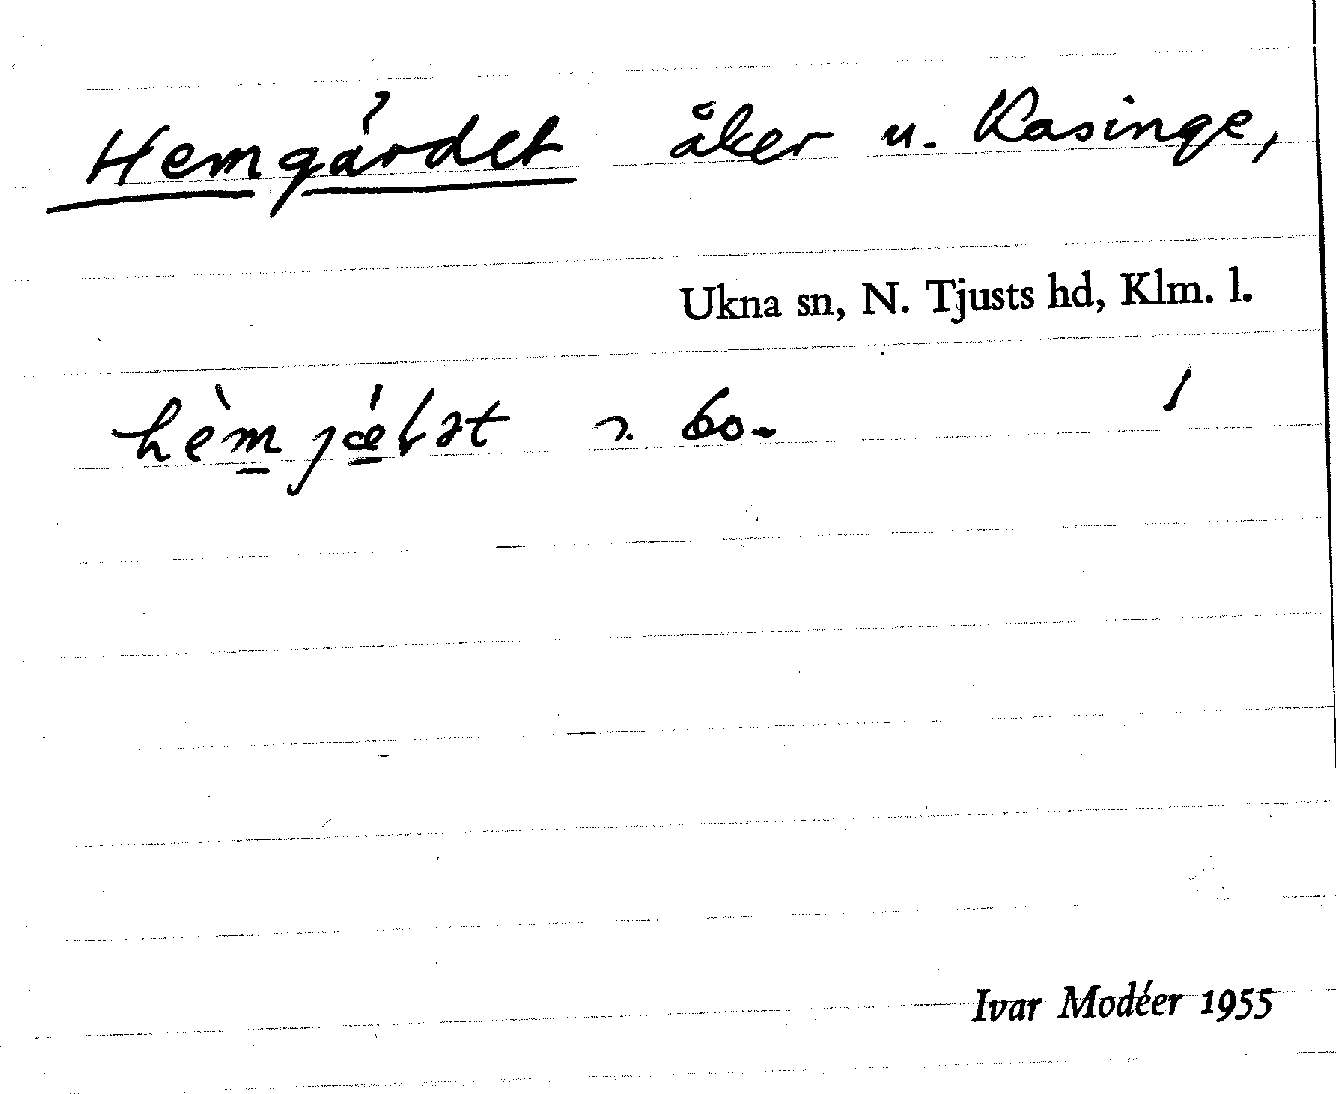 Hemgärdet åker u. Kasinge,
Ukna sn, N. Tjusts hd, Klm. l.
60.
Ivar Modéer 1955